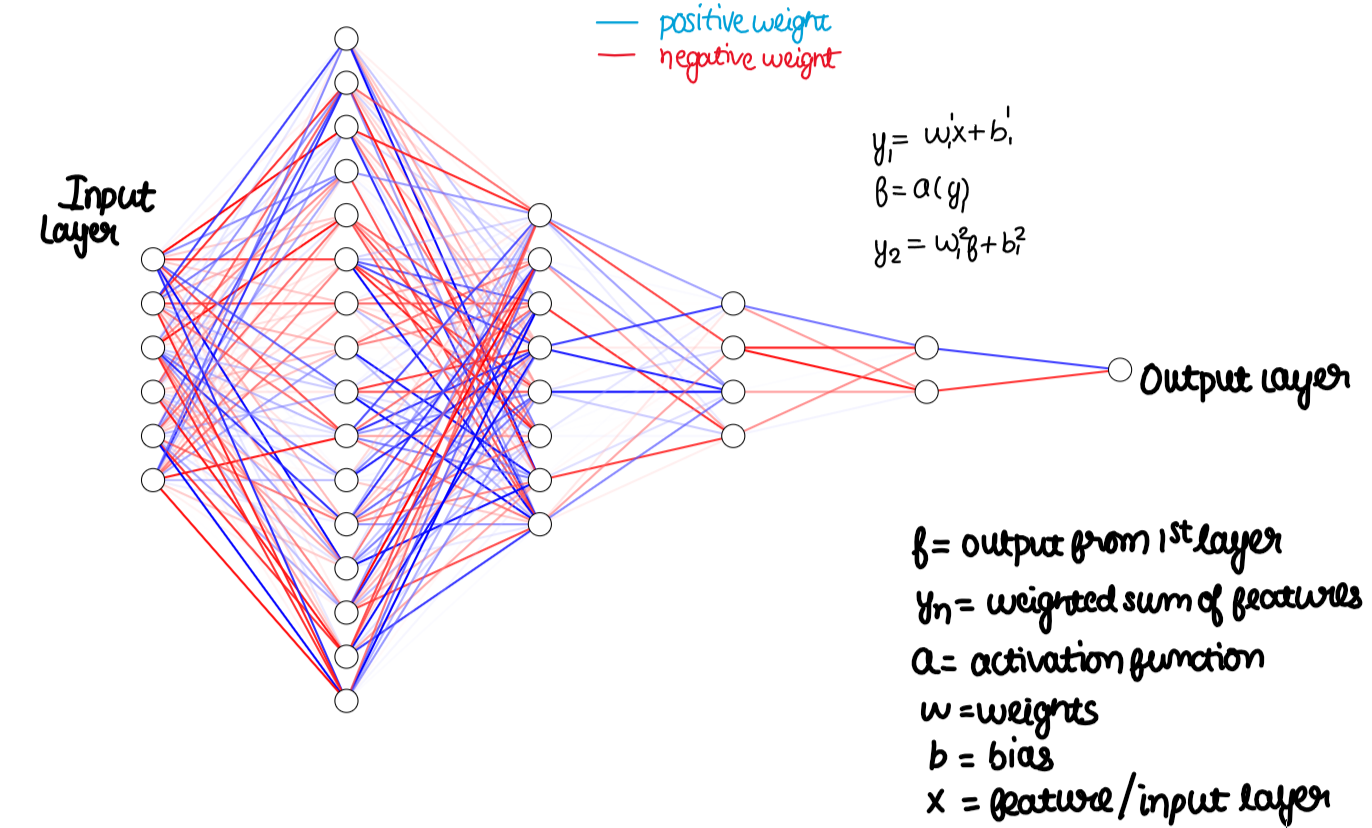 positive weight
negative weight
Input
Layer
y₁= w₁¹x+b₁¹
f=a(y₁)
y₂ = w₁²f+b₁²
Output Layer
f= output from 1st layer
yn= weighted sum of features
a= activation function
w =weights
b = bias
x = feature/input layer